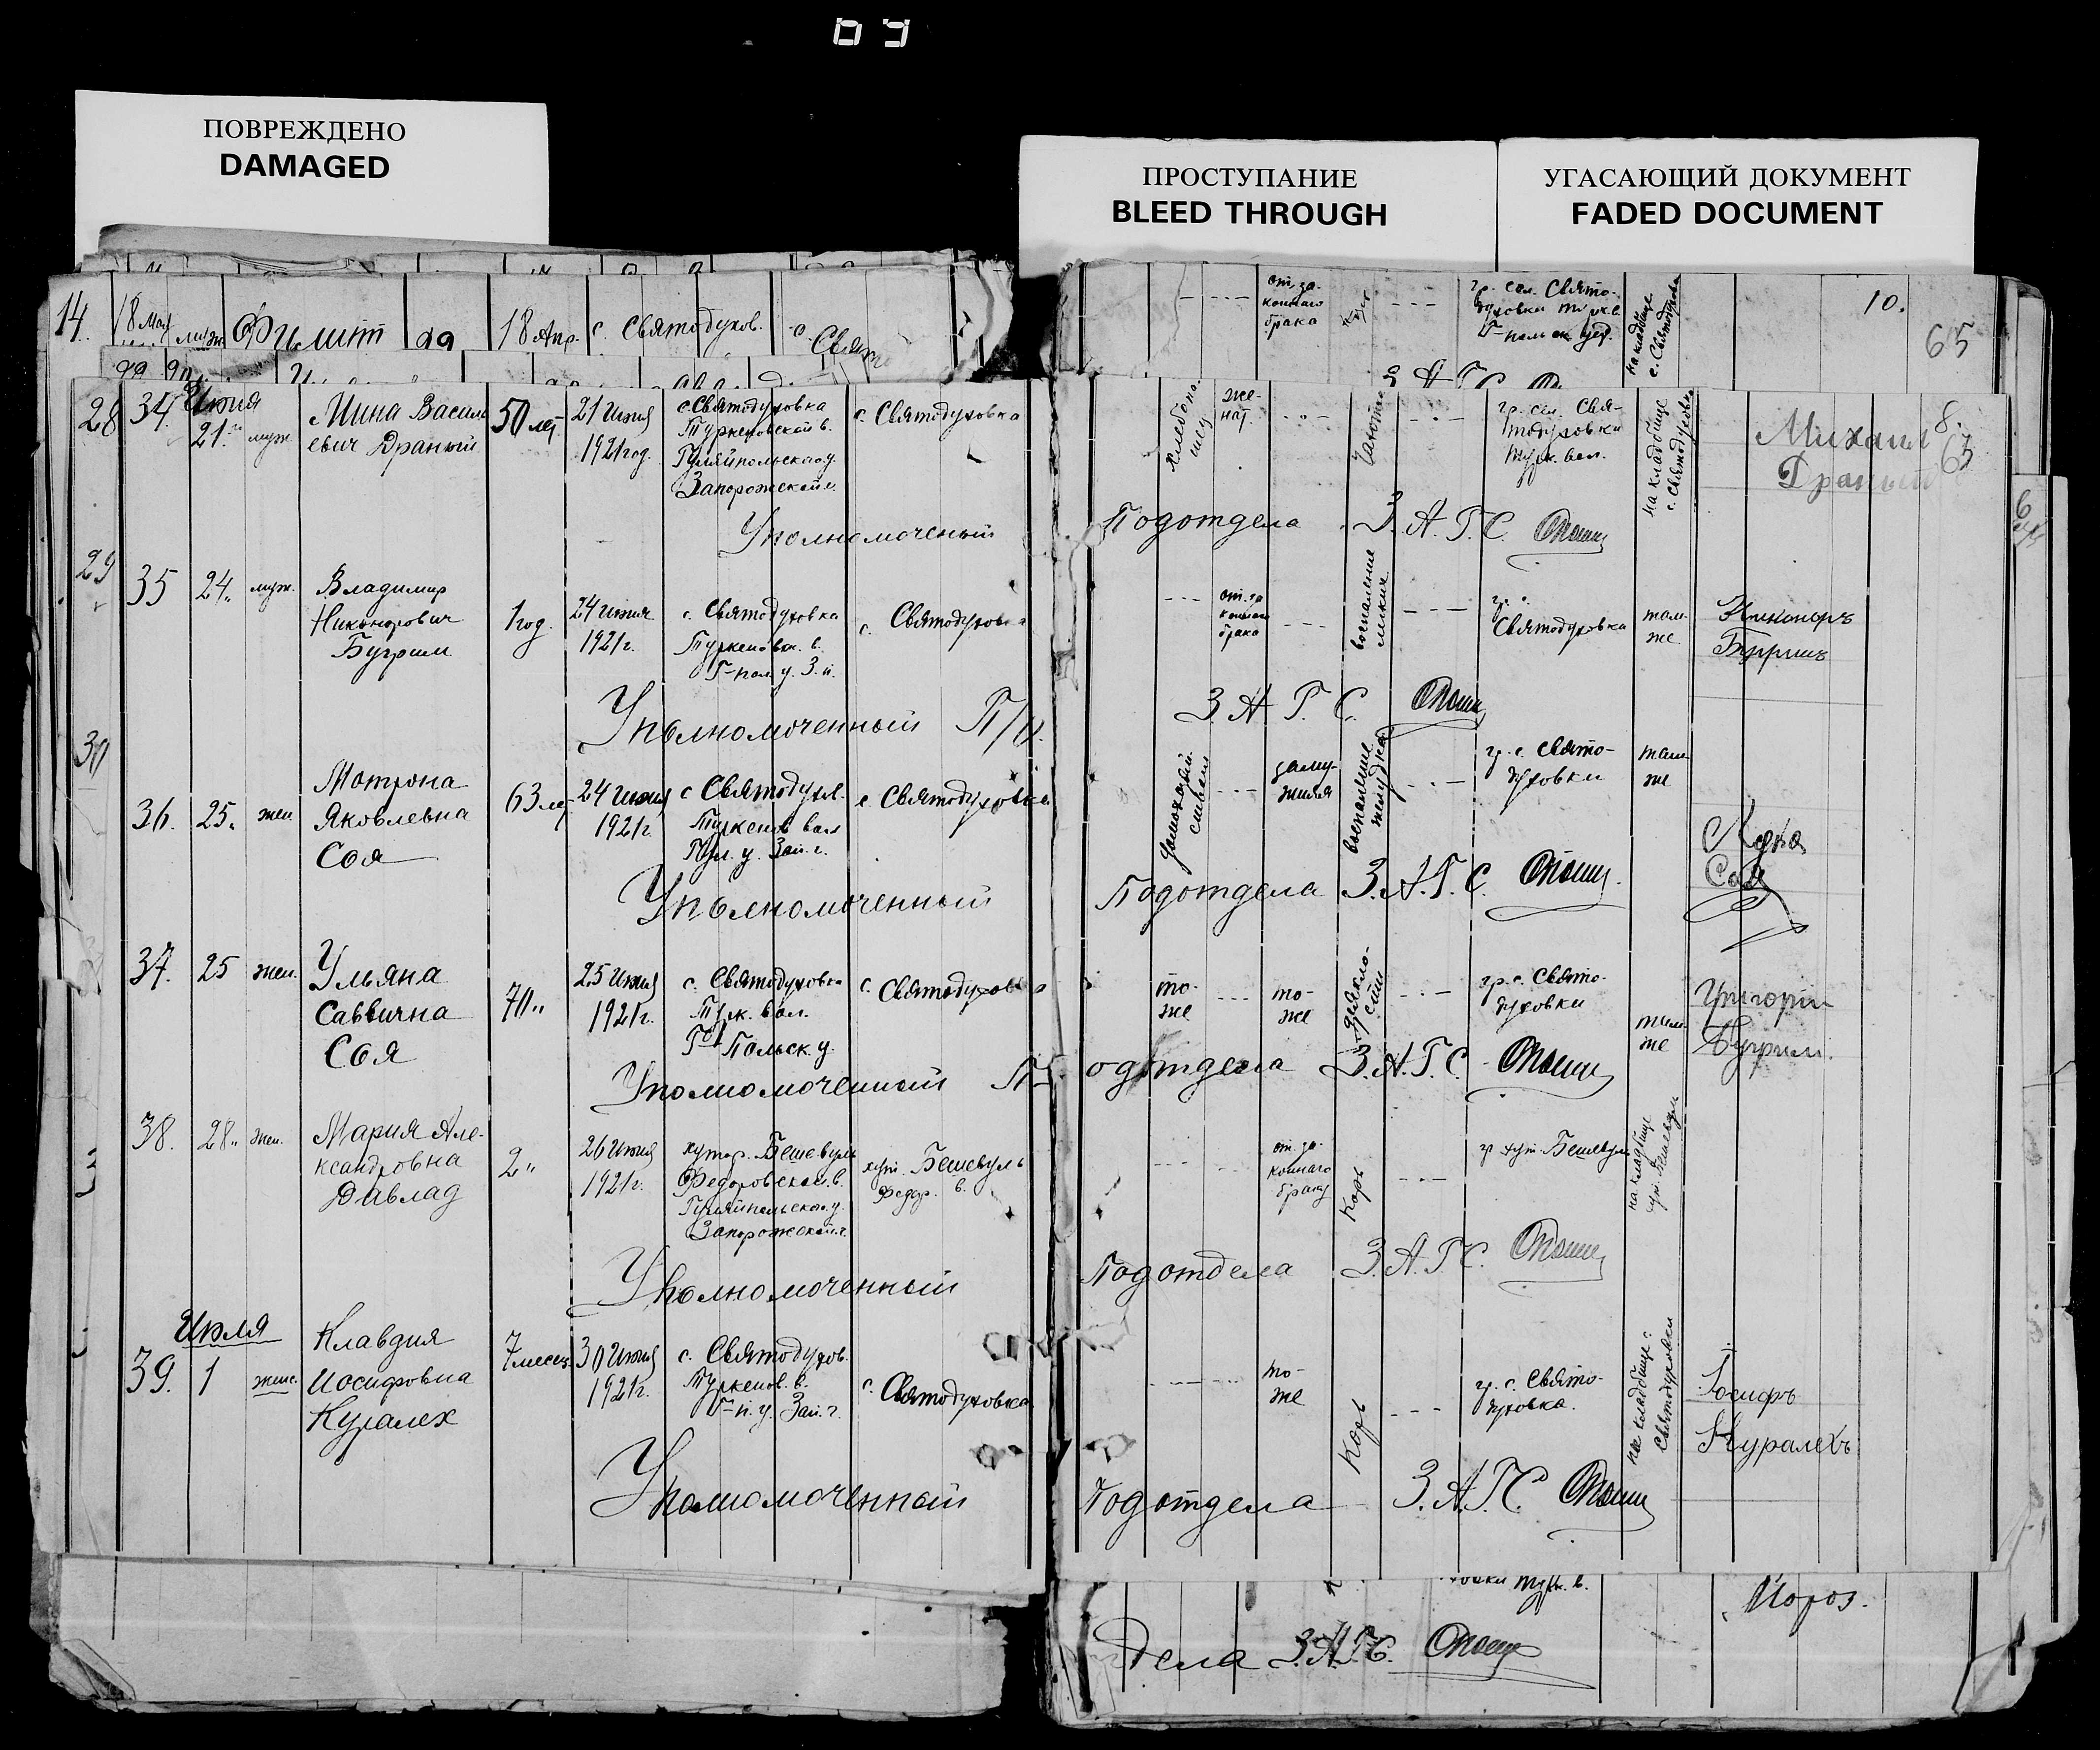 ПОВРЕЖДЕНО
DAMAGED
ПРОСТУПАНИЕ
BLEED THROUGH
УГАСАЮЩИЙ ДОКУМЕНТ
FADED DOCUMENT
14. 18 мая 18 Апр. с. Святодухов. с.
от за-
коннаго
брака
10.
65
28 34. Июня
21. муж.
Мина Василь
евич Драный
50 лет
21 Июня
1921 год.
с. Святодуховка
Туркеновской в.
Гуляйпольскаго у.
Запорожской г.
с. Святодуховка
же-
нат.
гр. сел. Свя-
тодуховки
Турк. вол.
на кладбище
с. Святодуховка
Михаил
Драный
8.
63
Уполномоченый Подотдела З.А.Г.С.
29 35 24 " муж.
Владимир
Никонорович
Бугрим
1 год.
24 Июня
1921 г.
с. Святодуховка
Туркеновск. в.
Г-пол. у. З. г.
с. Святодуховка
от за
коннаго
брака
воспаление
легких
Святодуховка
там-
же
Никоноръ
Бугримъ
Уполномоченный П/о. З.А.Г.С.
30
36. 25 " жен
Мотрона
Яковлевна
Соя
63 лет
24 Июня
1921 г.
с Святодухов.
Туркенов вол
Гул. у. Зап. г.
с. Святодуховка
заму-
жняя
воспаление
желудка
гр. с. Свято-
духовки
там
же
Соя
Уполномоченный Подотдела З.А.Г.С.
37. 25 жен.
Ульяна
Саввична
Соя
70 "
25 Июня
1921 г.
с. Святодуховка
Турк. вол.
Г-Польск. у.
с. Святодуховка
то-
же
то-
же
гр. с. Свято-
духовки
там
же
Григорий
Бугрим.
Уполномоченный Подотдела З.А.Г.С.
38. 28 " жен.
Мария Але-
ксандровна
Давлад
2 "
26 Июня
1921 г.
хутор. Бешевуль
Федоровской в.
Гуляйпольскаго у.
Запорожской г.
хут. Бешевуль
Федор. в.
от за-
коннаго
брака
Корь
гр хут. Бешевуль
на кладбище
хут. Бешевуль
Уполномоченный Подотдела З.А.Г.С.
Июля
39. 1 женс.
Клавдия
Иосифовна
Куралех
7 месец.
30 Июня
1921 г.
с. Святодухов.
Туркенов. в.
Г-п. у. Зап. г.
с. Святодуховка
то-
же
Корь
гр. с. Свято-
духовка.
на кладбище с.
Святодуховки
Іосифъ
Куралехъ
Уполномоченный Подотдела З.А.Г.С.
Мороз.
дела З.А.Г.С.